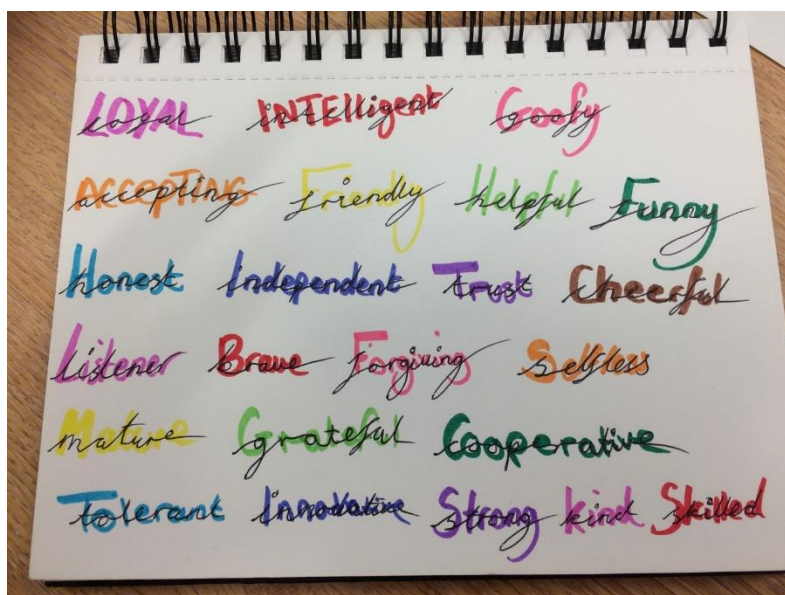 LOYAL INTElligent Goofy
ACCEPTING Friendly Helpful Funny
Honest Independent Trust Cheerful
Listener Brave Forgiving Selfless
Mature Grateful Cooperative
Tolerant Innovative Strong kind Skilled